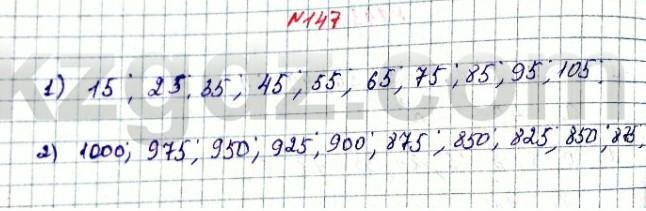 №147
1) 15; 25; 35; 45; 55; 65; 75; 85; 95; 105;
2) 1000; 975; 950; 925; 900; 875; 850; 825, 850;